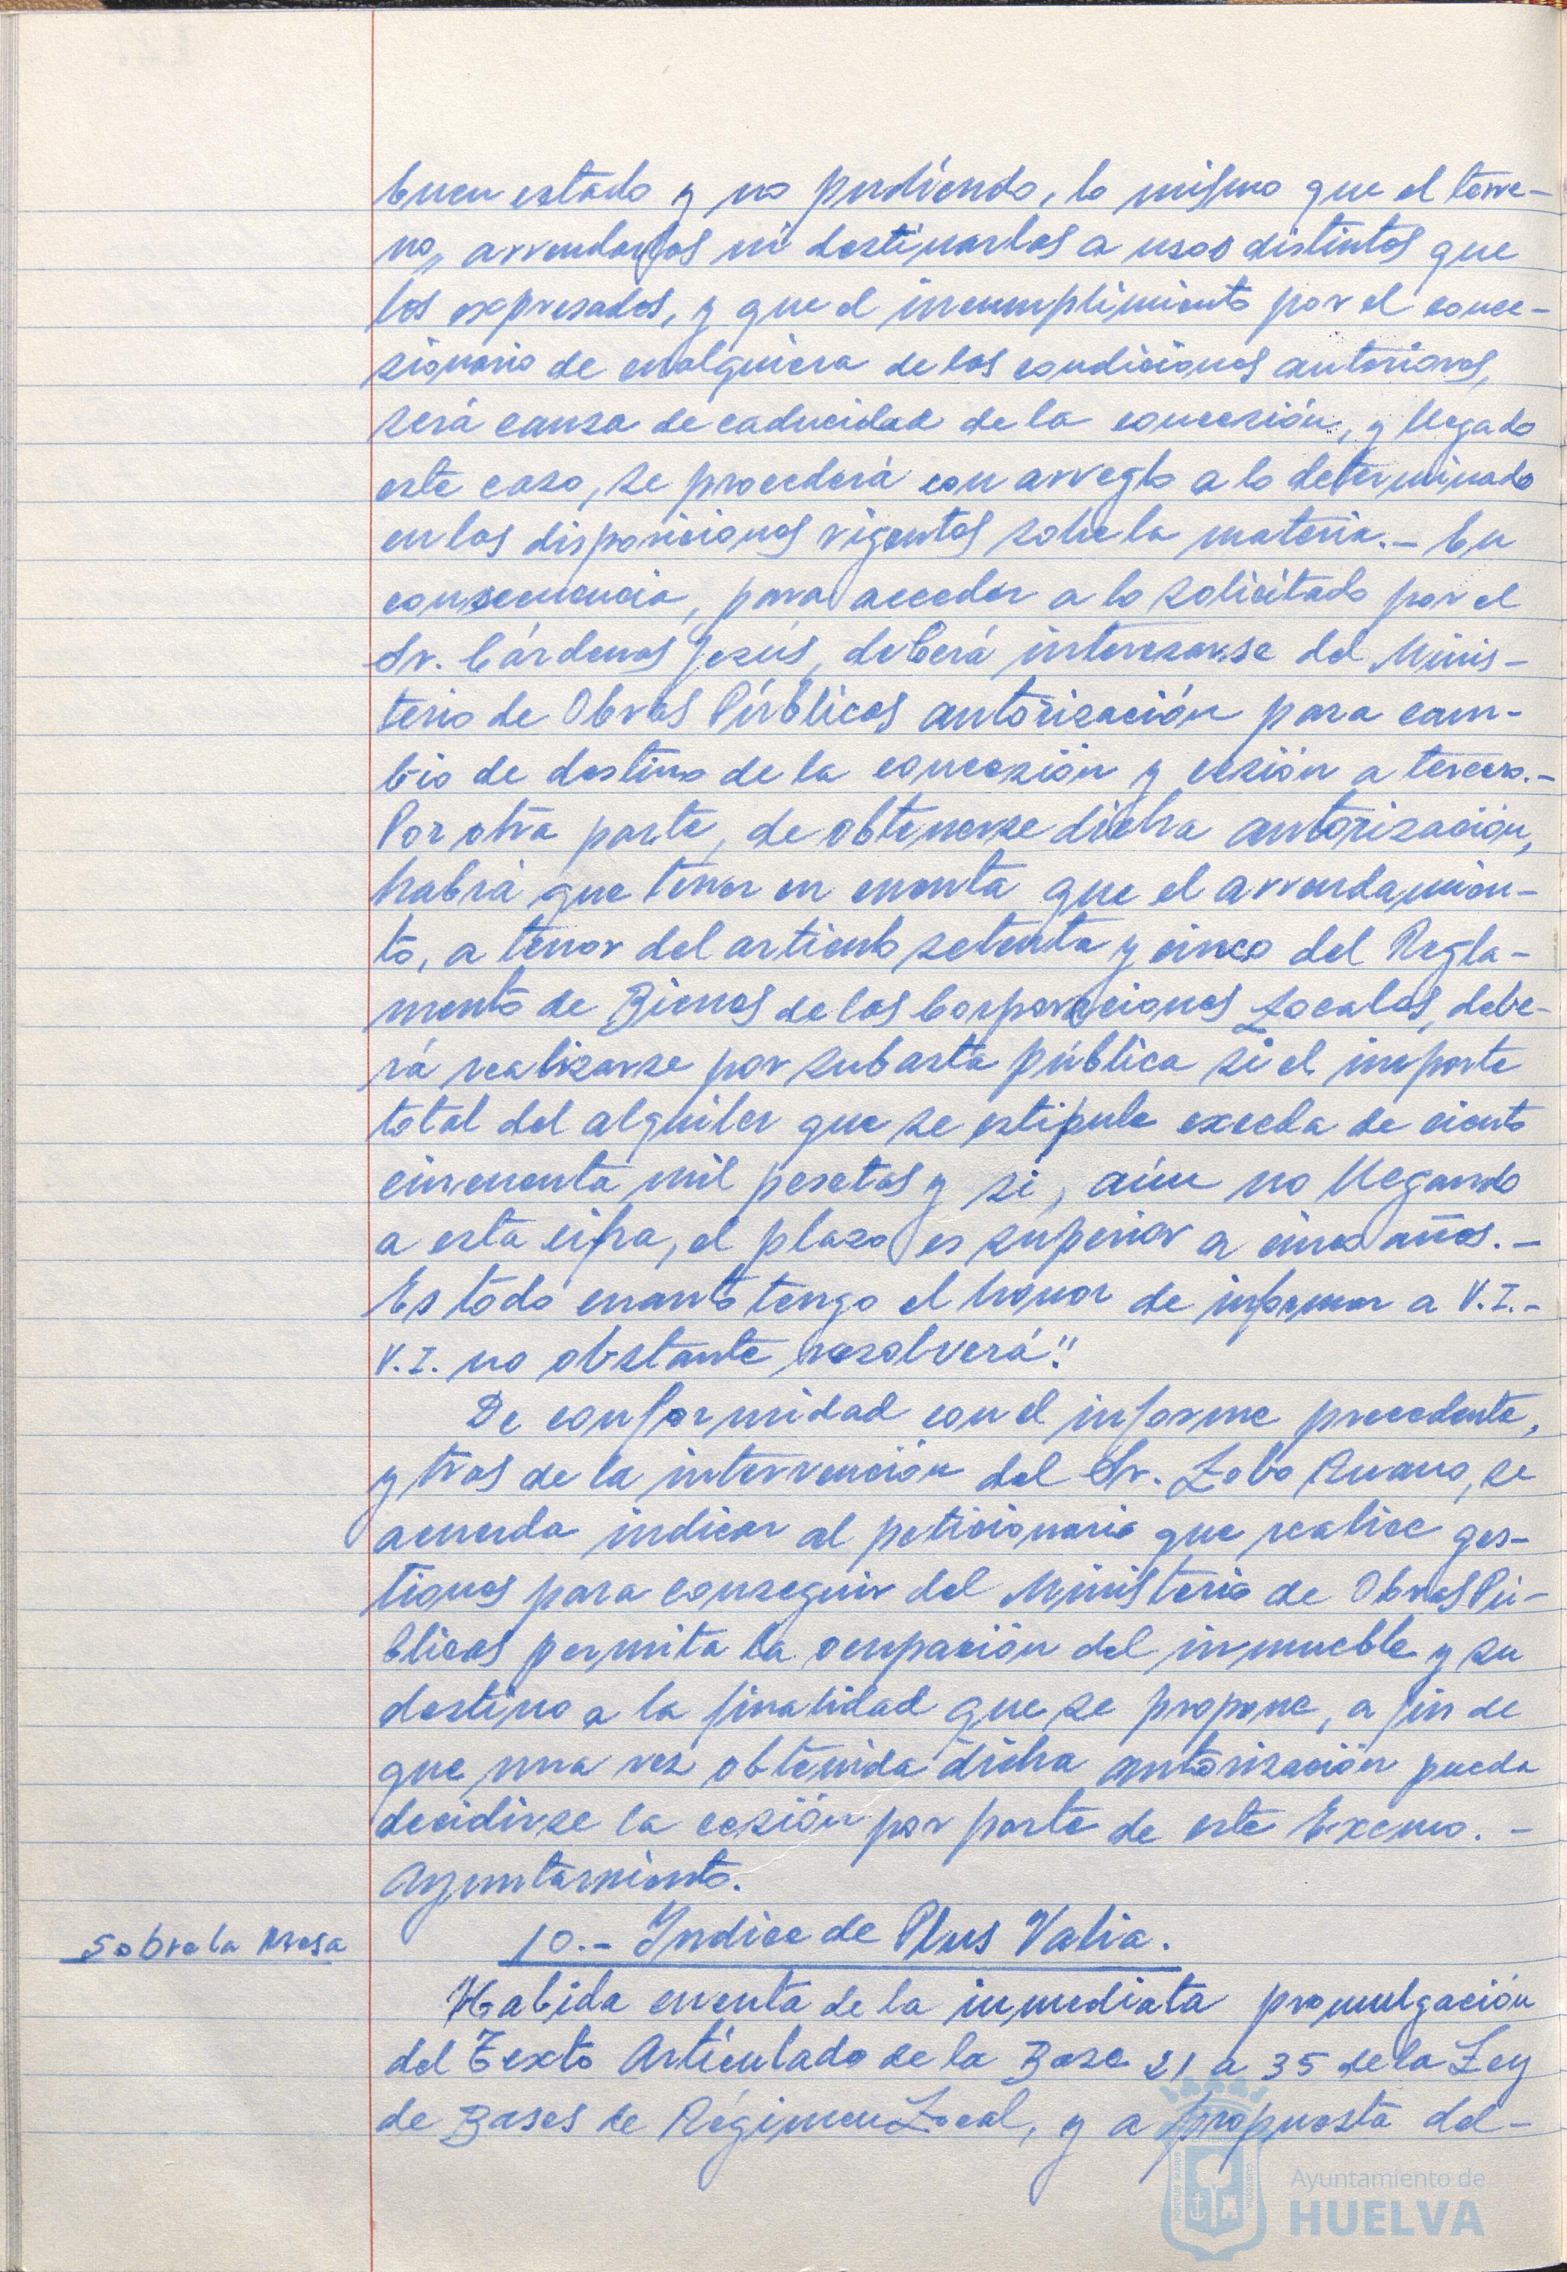 buen estado y no pudiendo, lo mismo que el terre-
no, arrendarlos ni destinarlos a usos distintos que
los expresados, y que el incumplimiento por el conce-
sionario de cualquiera de las condiciones anteriores,
será causa de caducidad de la concesión, y llegado
este caso, se procederá con arreglo a lo determinado
en las disposiciones vigentes sobre la materia.- En
consecuencia, para acceder a lo solicitado por el
Sr. Cárdenas Jesús, deberá interesarse del Minis-
terio de Obras Públicas autorización para cam-
bio de destino de la concesión y cesión a tercero.-
Por otra parte, de obtenerse dicha autorización,
habrá que tener en cuenta que el arrendamien-
to, a tenor del artículo setenta y cinco del Regla-
mento de Bienes de las Corporaciones Locales, debe-
rá realizarse por subasta pública si el importe
total del alquiler que se estipule exceda de ciento
cincuenta mil pesetas y si, aún no llegando
a esta cifra, el plazo es superior a cinco años.-
Es todo cuanto tengo el honor de informar a V.I.-
V.I. no obstante resolverá".
De conformidad con el informe precedente,
y tras de la intervención del Sr. Lobo Ruano, se
acuerda indicar al peticionario que realice ges-
tiones para conseguir del Ministerio de Obras Pú-
blicas permita la ocupación del inmueble y su
destino a la finalidad que se propone, a fin de
que una vez obtenida dicha autorización pueda
decidirse la cesión por parte de este Excmo. -
Ayuntamiento.
Sobre la Mesa
10.- Indice de Plus Valia.
Habida cuenta de la inmediata promulgación
del Texto Articulado de la Base 21 a 35 de la Ley
de Bases de Régimen Local, y a propuesta del-
Ayuntamiento de
HUELVA